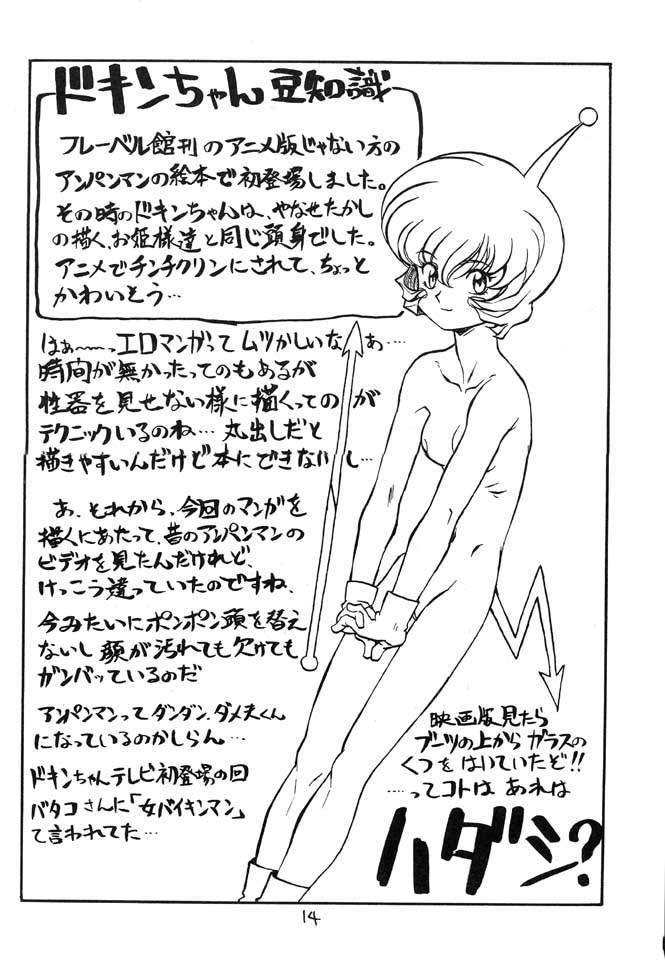 ドキンちゃん 豆知識
フレーベル館刊のアニメ版じゃない方の
アンパンマンの絵本で初登場しました。
その時のドキンちゃんは、やなせたかし
の描く、お姫様達と同じ頭身でした。
アニメでチンチクリンにされて、ちょっと
かわいそう…
はぁ〜〜っエロマンガってムツかしいなぁ…
時間が無かったってのもあるが
性器を見せない様に描くってのが
テクニックいるのね…丸出しだと
描きやすいんだけど本にできないし…
あ、それから、今回のマンガを
描くにあたって、昔のアンパンマンの
ビデオを見たんだけれど、
けっこう違っていたのですね、
今みたいにポンポン頭を替え
ないし顔が汚れても欠けても
ガンバッているのだ
アンパンマンってダンダン、ダメ夫くん
になっているのかしらん…
ドキンちゃんテレビ初登場の回
バタコさんに「女バイキンマン」
て言われてた…
映画版見たら
ブーツの上からガラスの
くつをはいていたぞ!!
…ってコトは あれは
ハダシ?
14